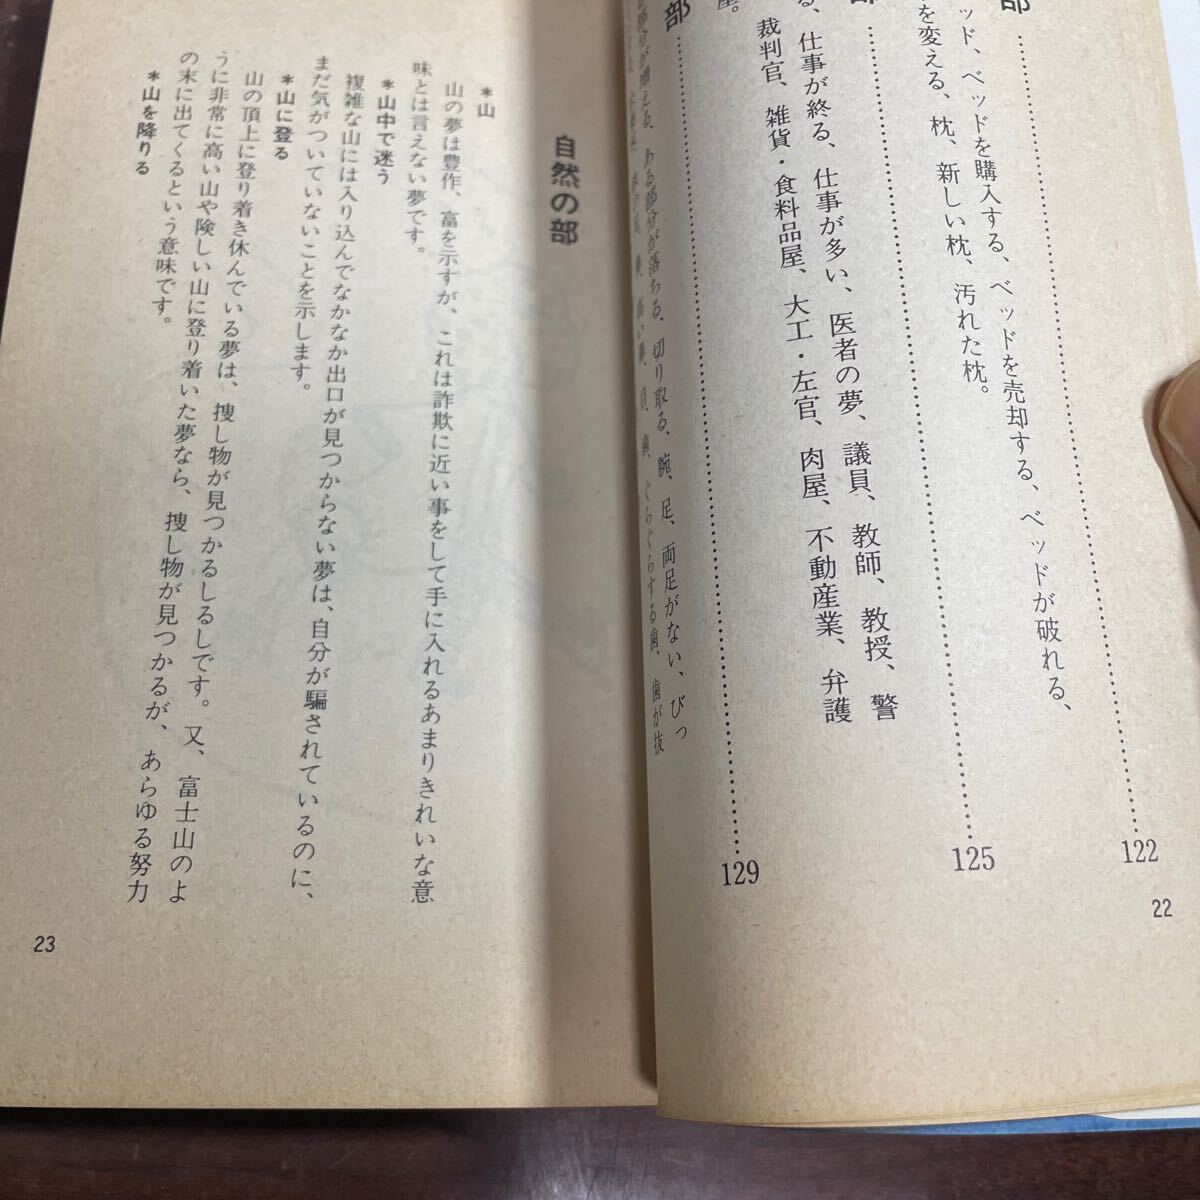 部
……………………………………122
ッド、ベッドを購入する、ベッドを売却する、ベッドが破れる、
を変える、枕、新しい枕、汚れた枕。
部
……………………………………125
る、仕事が終る、仕事が多い、医者の夢、議員、教師、教授、警
裁判官、雑貨・食料品屋、大工・左官、肉屋、不動産業、弁護
屋。
部
……………………………………129
部分が増える、ある部分が落ちる、切り取る、腕、足、両足がない、びっ
目、歯、ぐらぐらする歯、歯が抜
22
自然の部
*山
山の夢は豊作、富を示すが、これは詐欺に近い事をして手に入れるあまりきれいな意
味とは言えない夢です。
*山中で迷う
複雑な山には入り込んでなかなか出口が見つからない夢は、自分が騙されているのに、
まだ気がついていないことを示します。
*山に登る
山の頂上に登り着き休んでいる夢は、捜し物が見つかるしるしです。又、富士山のよ
うに非常に高い山や険しい山に登り着いた夢なら、捜し物が見つかるが、あらゆる努力
の末に出てくるという意味です。
*山を降りる
23